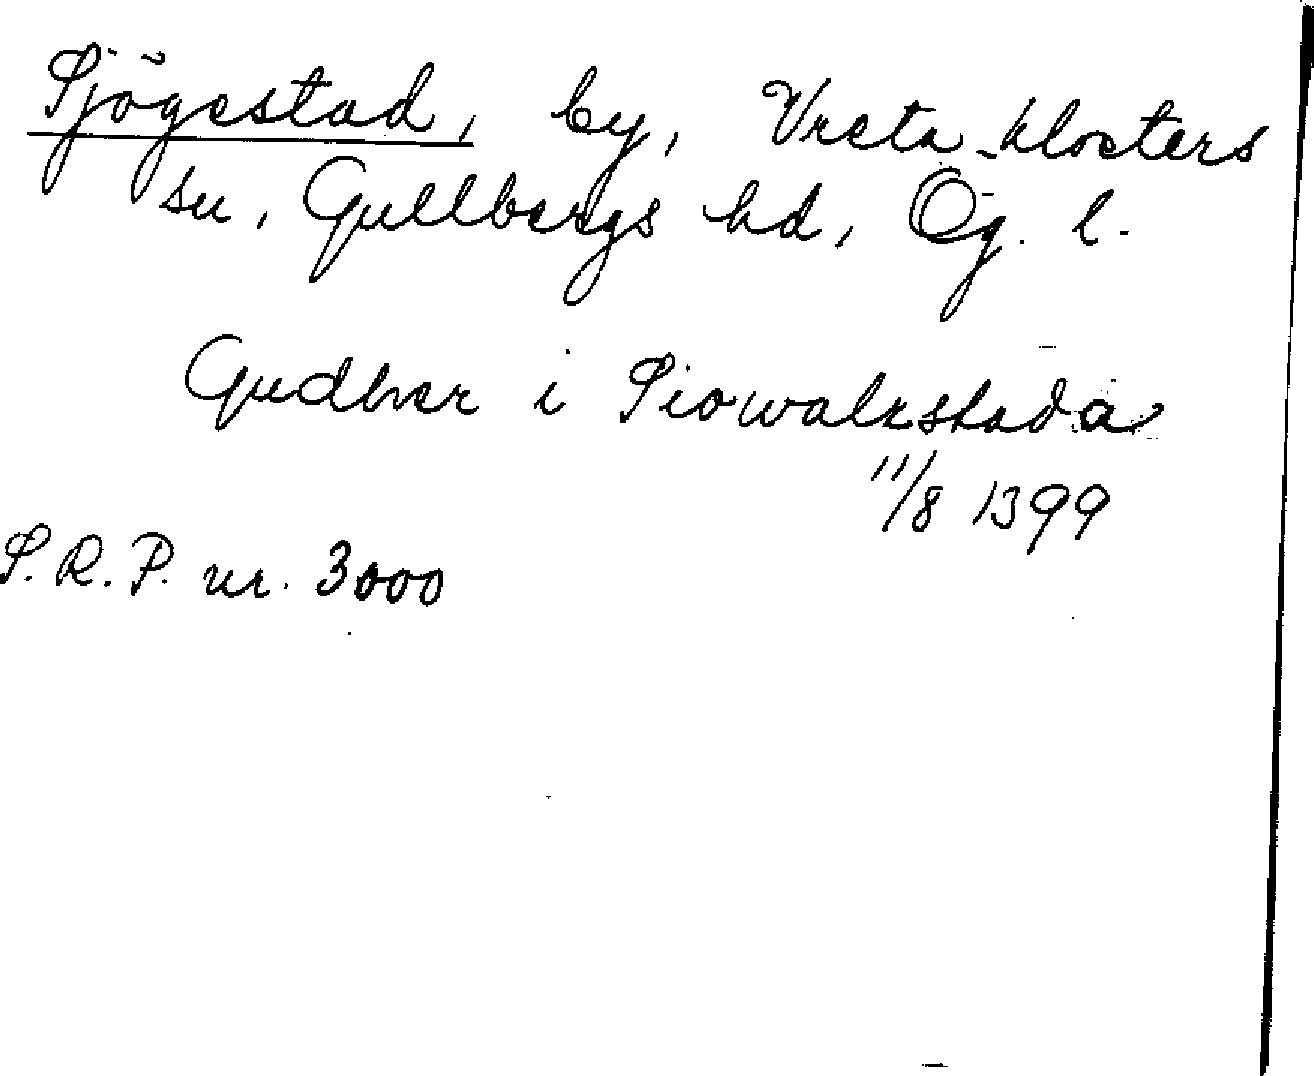 Sjögestad, by, Vreta klosters
sn, Gullbergs hd, Ög. l.
Gudhver i Siowalxstada
11/8 1399
S.R.P. nr. 3000